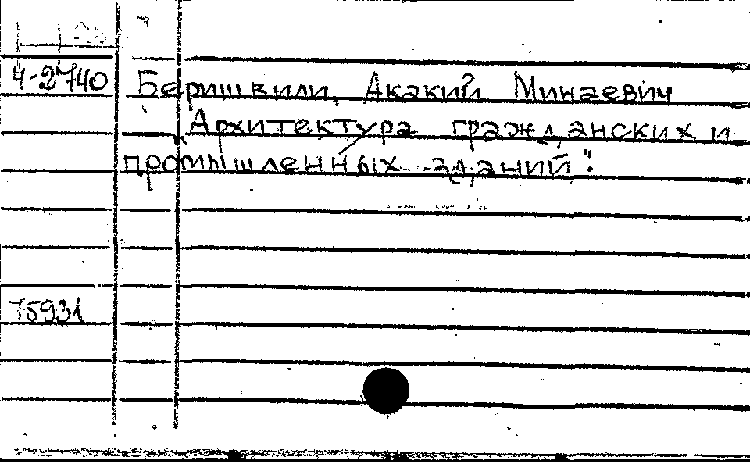 4-2740 Беришвили, Акакий Минаевич
"Архитектура гражданских и
промышленных зданий".
75931